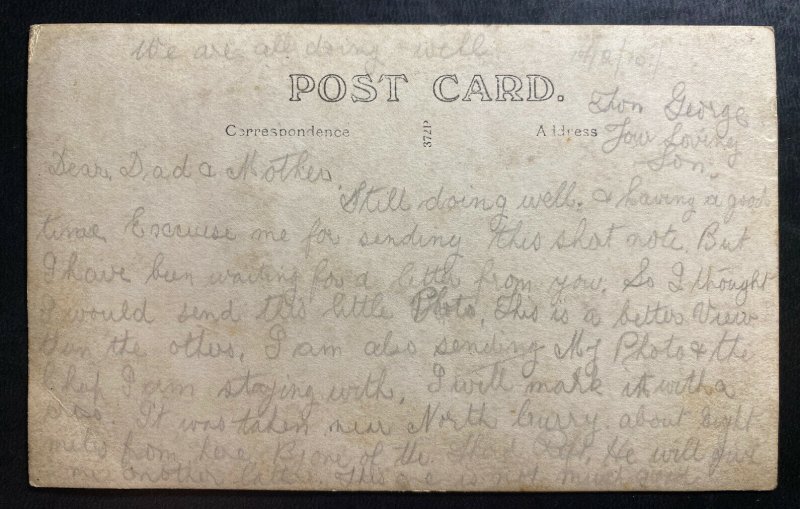 We are all doing well
14/12/16
POST CARD.
Correspondence
372P
Address
From George
Your Loving
Son.
Dear Dad & Mother
Still doing well. & having a good
time Excuise me for sending this short note. But
I have been waiting for a letter from you. So I thought
I would send this little Photo. This is a better View
than the others. I am also sending My Photo & the
Chap I am staying with. I will mark it with a
It was taken near North Curry about Eight
miles from here. By one of the He will give
me another later. This one not much good